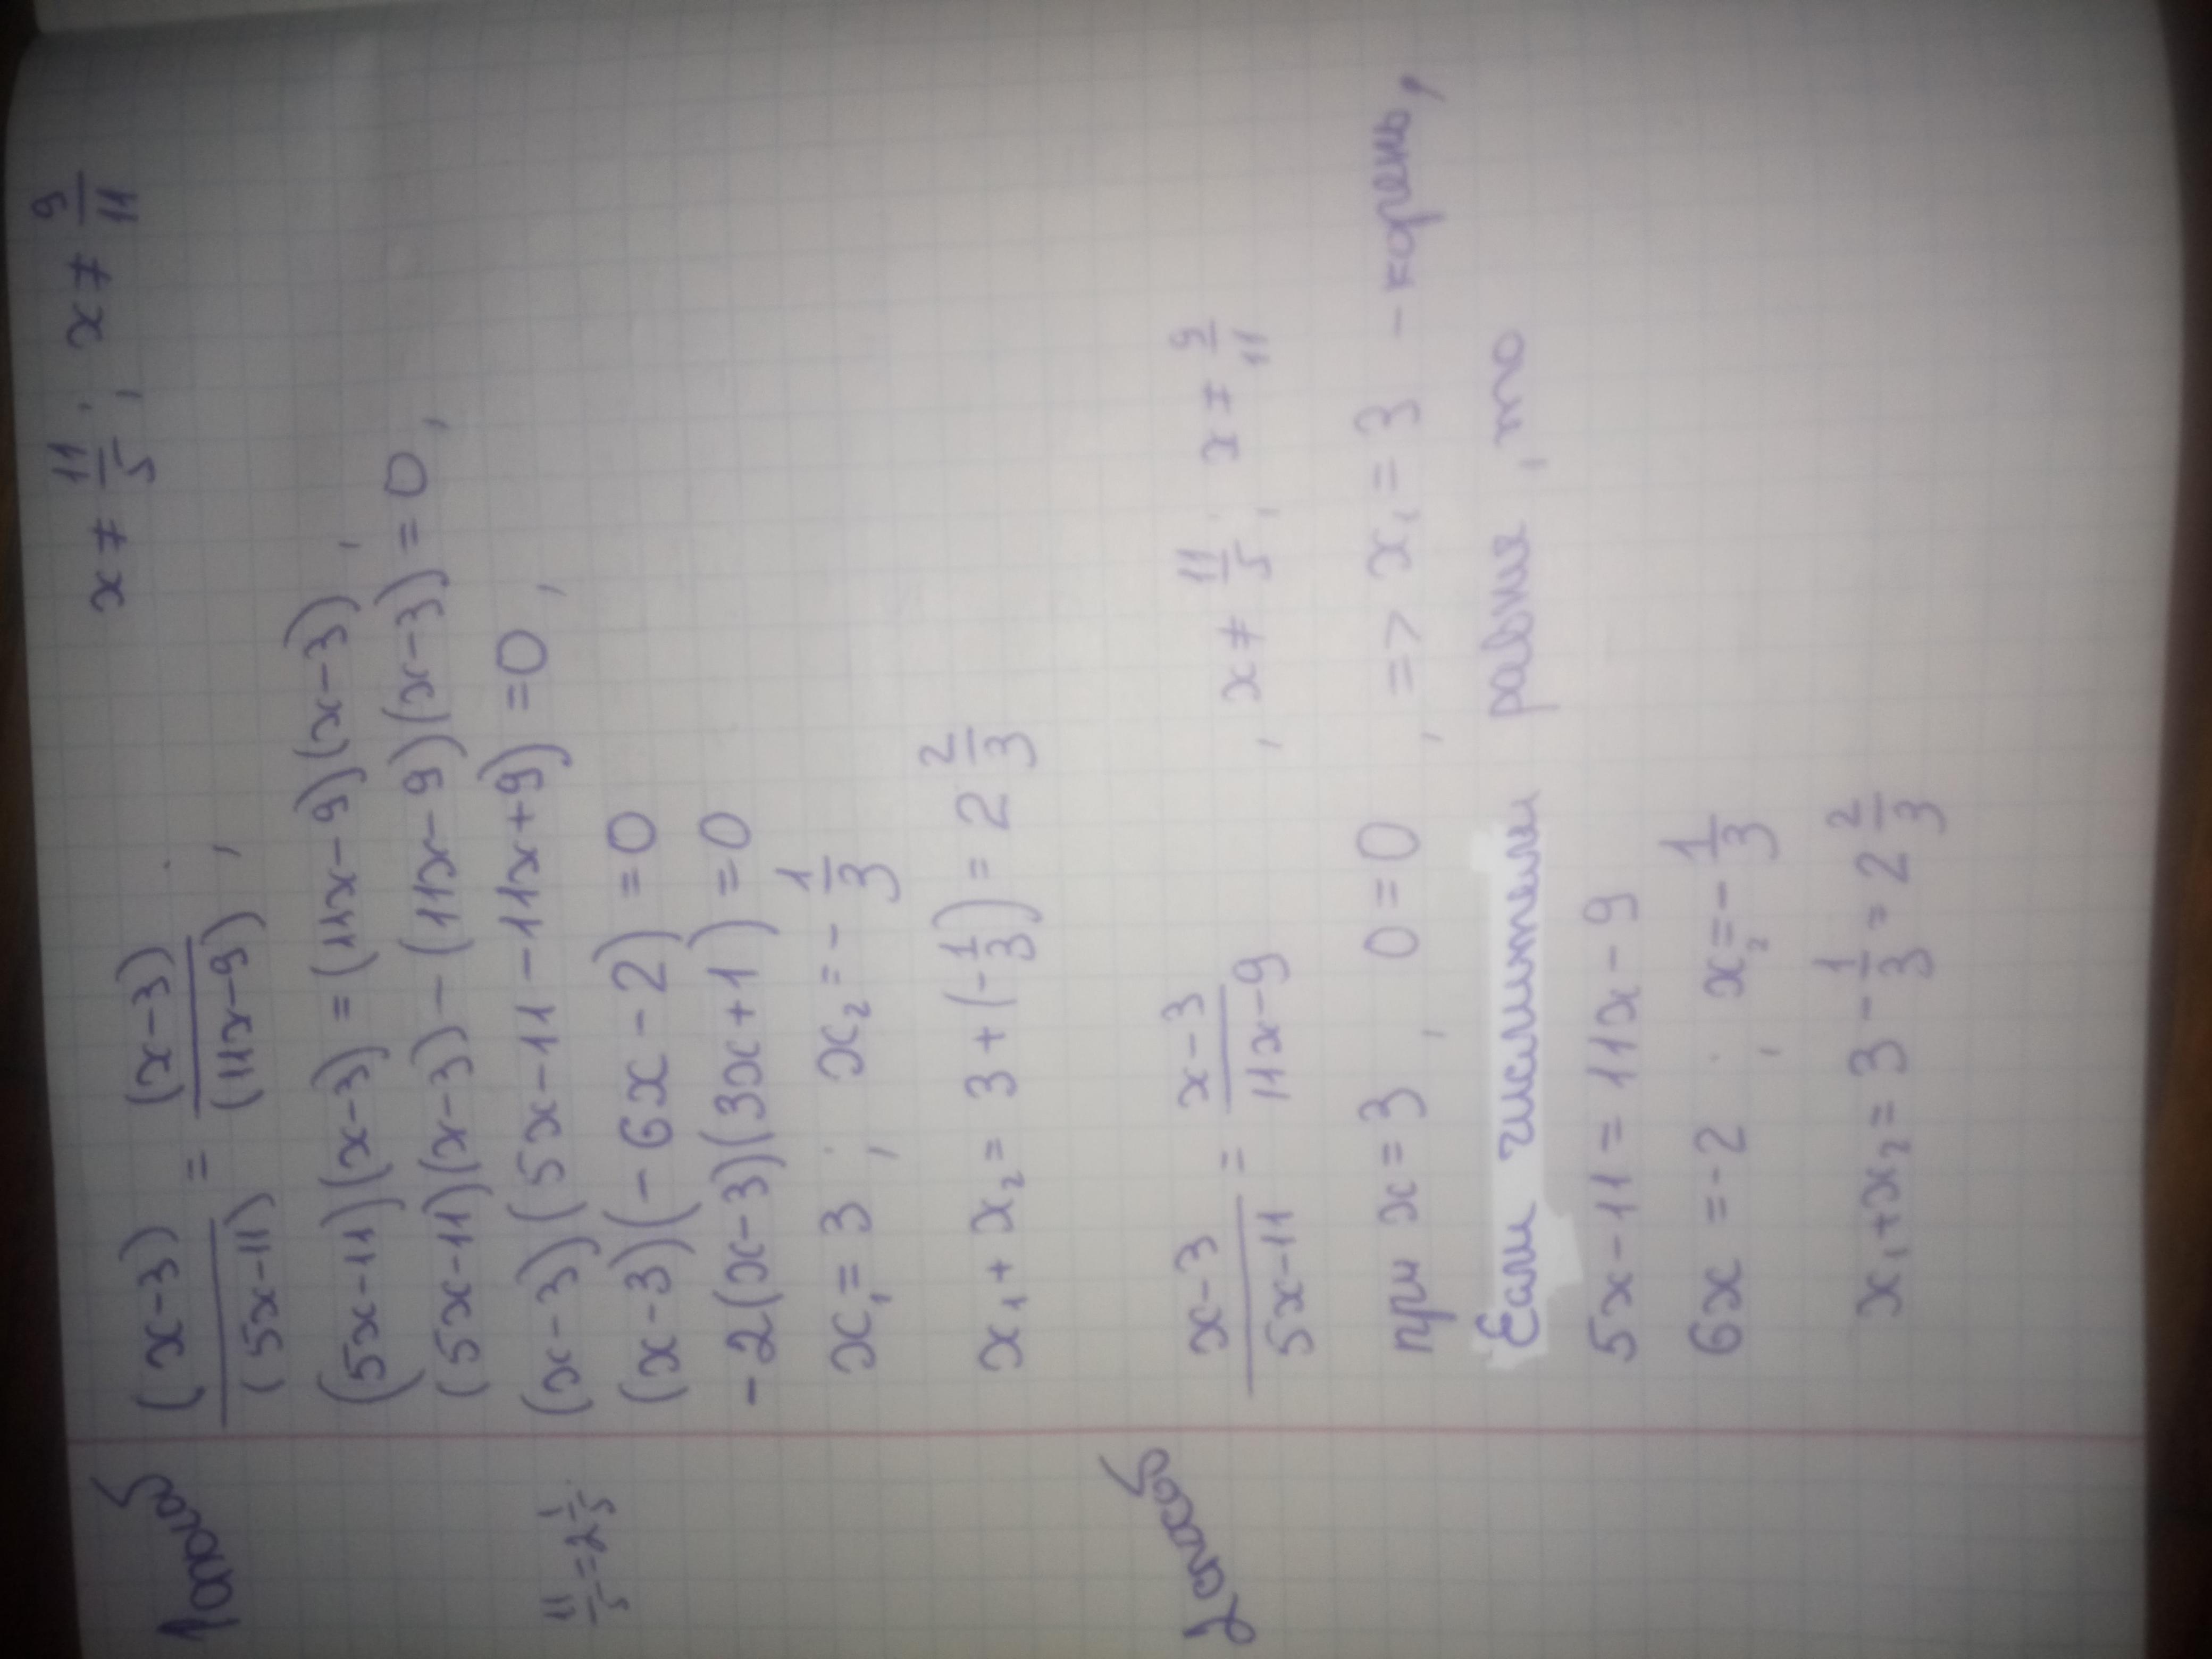 1 способ (x-3)/(5x-11) = (x-3)/(11x-9) ; x ≠ 11/5 ; x ≠ 9/11
(5x-11)(x-3) = (11x-9)(x-3),
(5x-11)(x-3) - (11x-9)(x-3) = 0,
11/5 = 2 1/5 (x-3)(5x-11-11x+9) = 0,
(x-3)(-6x-2) = 0
-2(x-3)(3x+1) = 0
x₁ = 3 ; x₂ = - 1/3
x₁ + x₂ = 3 + (- 1/3) = 2 2/3
2 способ x-3/5x-11 = x-3/11x-9 , x ≠ 11/5 ; x ≠ 9/11
при x = 3 , 0 = 0 , => x₁ = 3 - корень,
Если числители равные , то
5x-11 = 11x-9
6x = -2 ; x₂ = - 1/3
x₁ + x₂ = 3 - 1/3 = 2 2/3